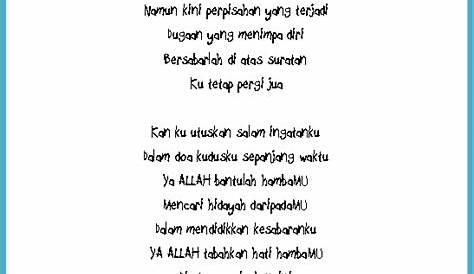 Namun kini perpisahan yang terjadi
Dugaan yang menimpa diri
Bersabarlah di atas suratan
Ku tetap pergi jua
Kan ku utuskan salam ingatanku
Dalam doa kudusku sepanjang waktu
Ya ALLAH bantulah hambaMU
Mencari hidayah daripadaMU
Dalam mendidikkan kesabaranku
YA ALLAH tabahkan hati hambaMU